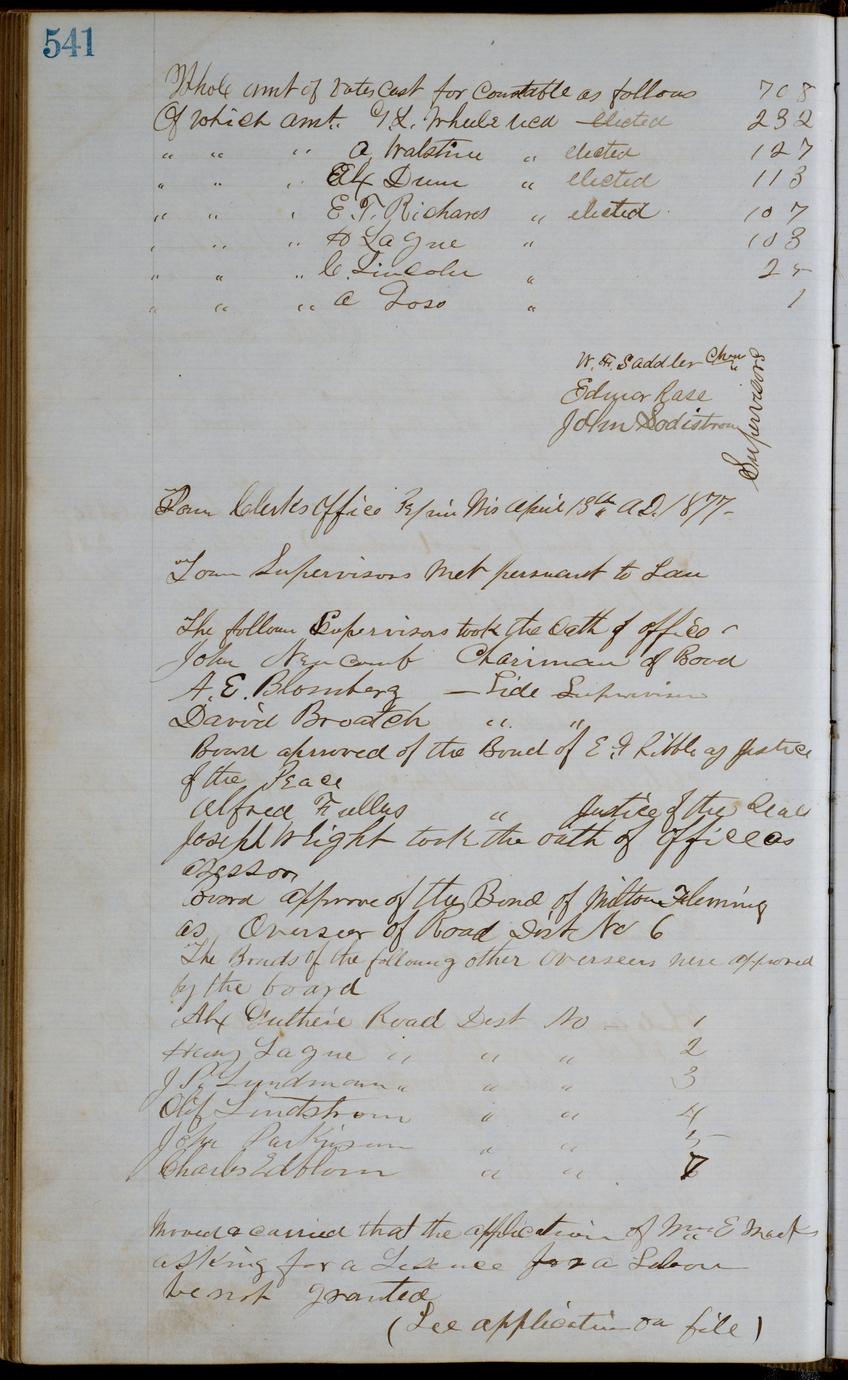 541
Whole amt of Votes Cast for Constable as follows 708
Of which amt. G.L. Wheele recd elected 232
" " " A Walstine " elected 127
" " " Alx Dunn " elected 113
" " " E.T. Richares " elected 107
" " " H La gue " 103
" " " C. Lincoln " 25
" " " A Foso " 1
W. H. Saddler Chm
Edmor Rase
John Sodistrom
Supervisors
Town Clerks Office Pepin Wis April 13th A.D. 1877-
Town Supervisors Met persuant to Law
The follown Supervisors took the Oath of office
John Newcomb Chairman of Board
A. E. Blomberg — Side Supervisor
David Broatch " "
Board aprroved of the Bond of E. F. Kibble as Justice
of the Peace
Alfred Fuller " Justice of the Peace
Joseph Wright took the oath of Office as
Assessor
Board approve of the Bond of Milton Fleming
as Overseer of Road Dist No 6
The Bonds of the following other Overseers were approved
by the board
Alx Guthrie Road Dist No 1
Hany La gue " " " 2
J. P. Lundmann " " " 3
Olif Lindstrom " " 4
John Parkinson " " 5
Charles Edblom " " 7
Moved & carried that the application of E Mack
asking for a Lisence for a Saloon
be not granted
(See application on file)